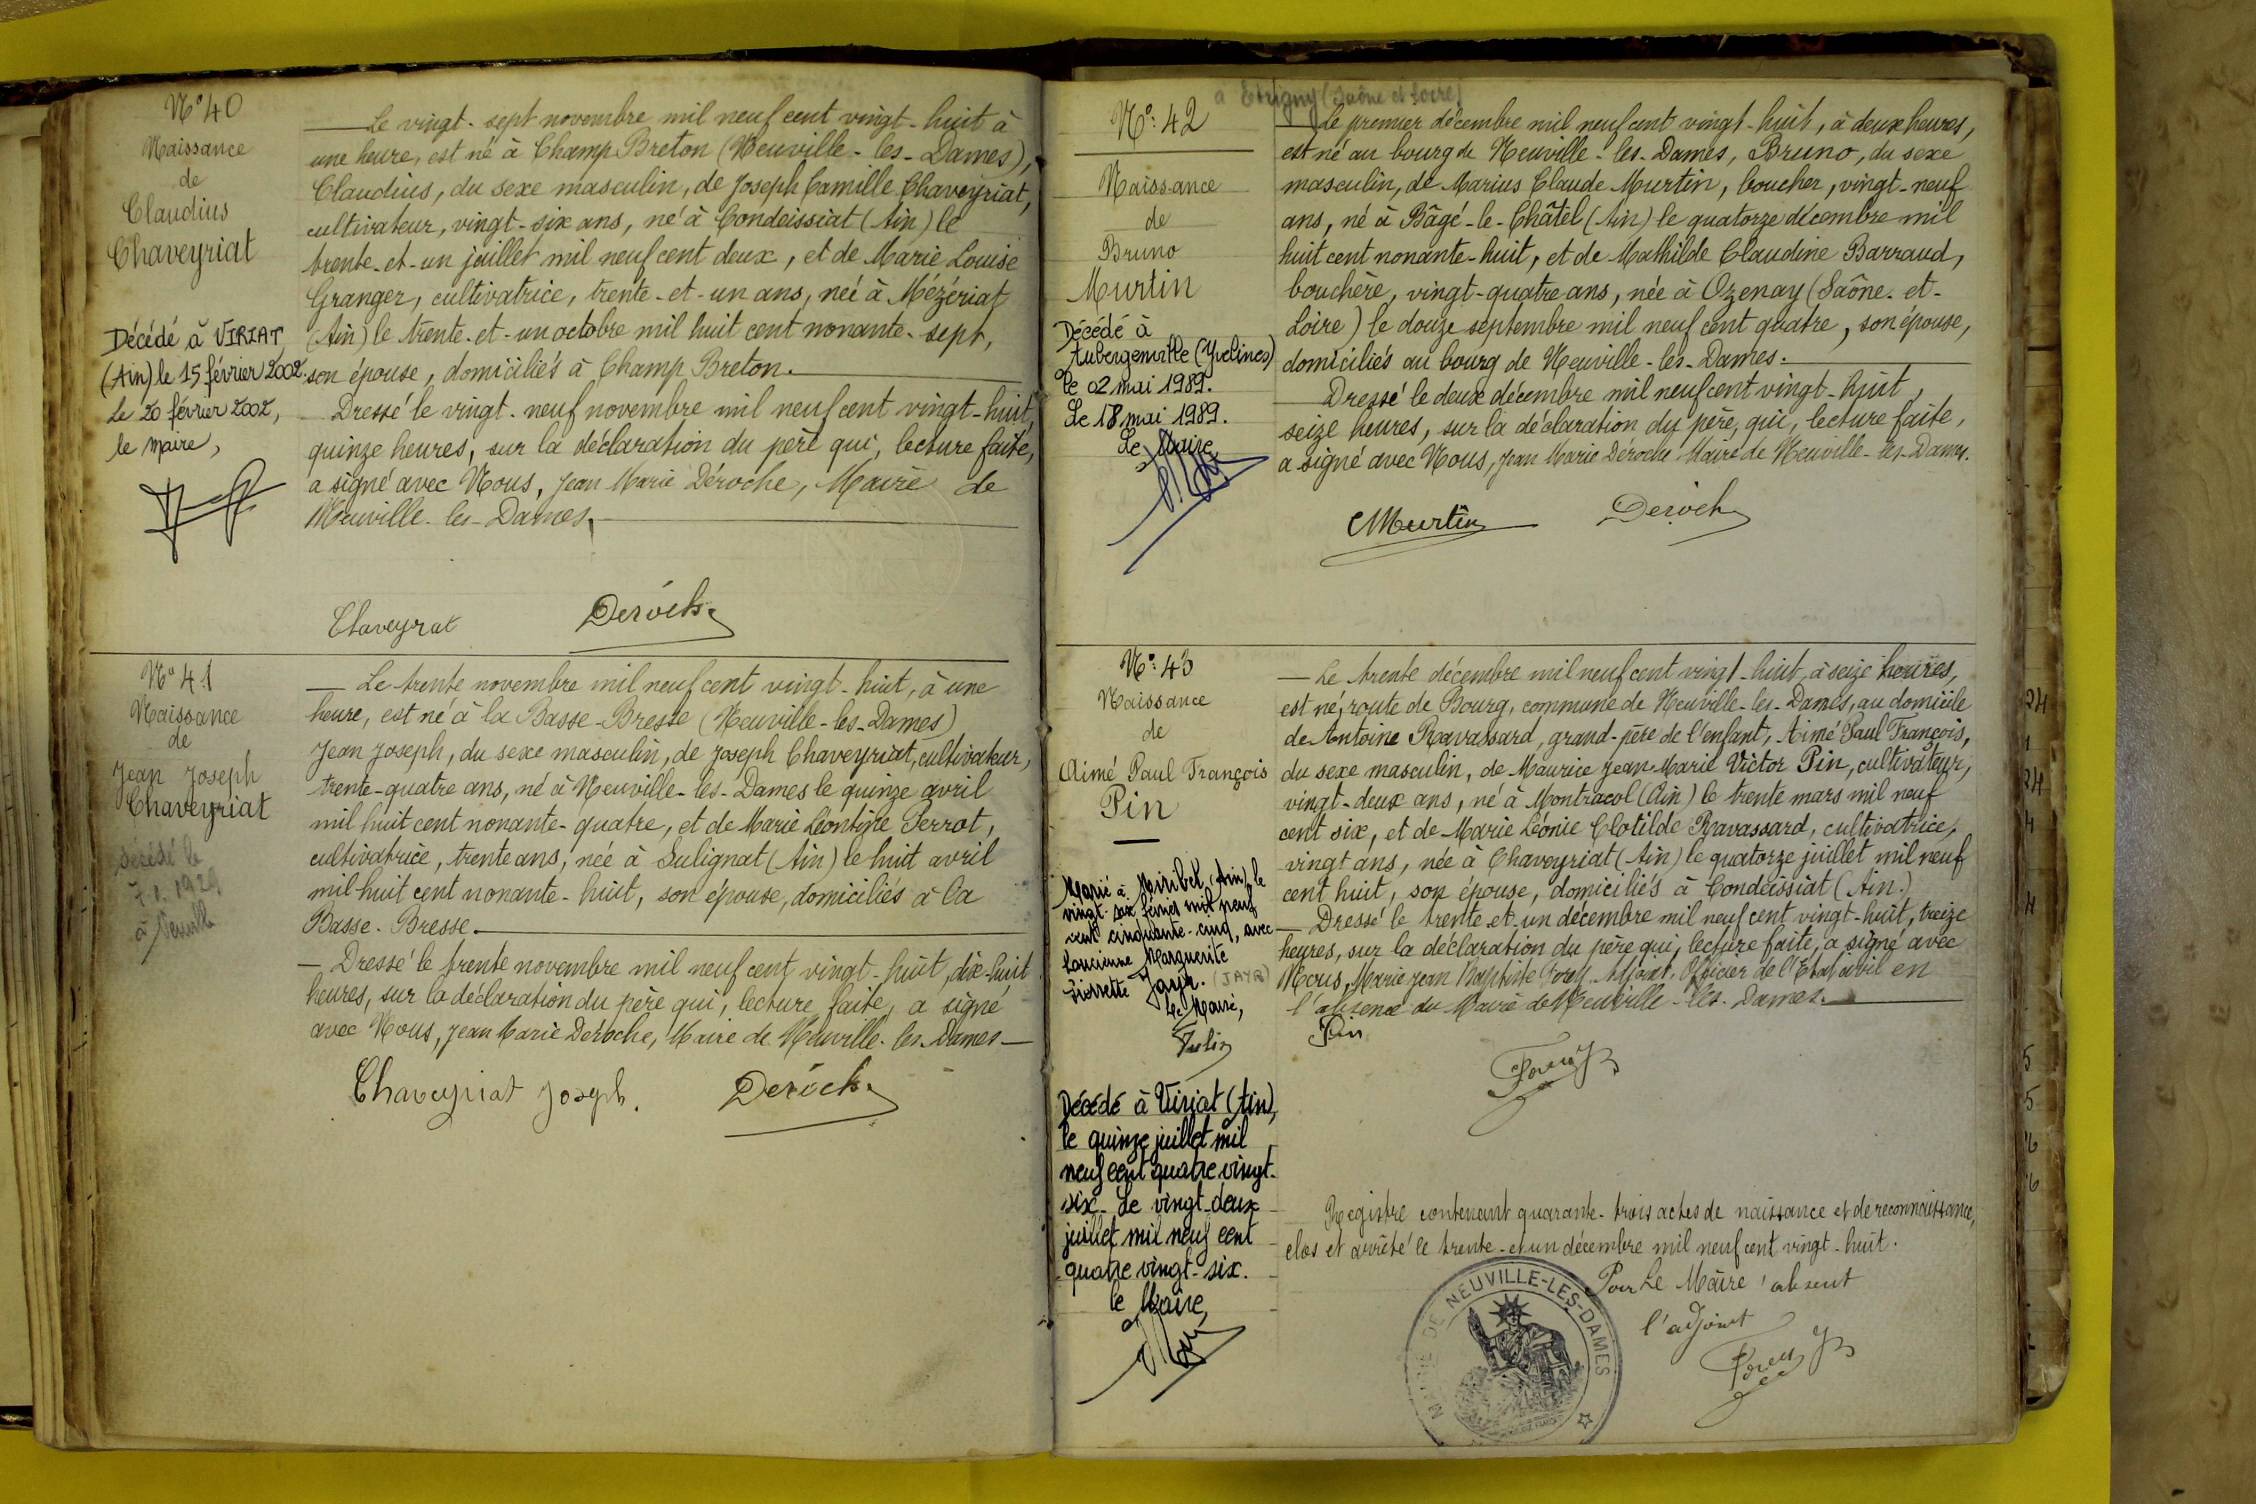 N° 40
Naissance
de
Claudius
Chaveyriat
Décédé à VIRIAT
(Ain) le 15 février 2002.
Le 20 février 2002,
le Maire,
Le vingt-sept novembre mil neuf cent vingt-huit à
une heure, est né à Champ Breton (Neuville-les-Dames),
Claudius, du sexe masculin, de Joseph Camille Chaveyriat,
cultivateur, vingt-six ans, né à Condeissiat (Ain) le
trente-et-un juillet mil neuf cent deux, et de Marie Louise
Granger, cultivatrice, trente-et-un ans, née à Mézériat
(Ain) le trente-et-un octobre mil huit cent nonante-sept,
son épouse, domiciliés à Champ Breton.
Dressé le vingt-neuf novembre mil neuf cent vingt-huit,
quinze heures, sur la déclaration du père qui, lecture faite,
a signé avec Nous, Jean Marie Déroche, Maire de
Neuville-les-Dames.
Chaveyrat Deroche
N° 41
Naissance
de
Jean Joseph
Chaveyriat
décédé le
7.1.1929
à Neuville
Le trente novembre mil neuf cent vingt-huit, à une
heure, est né à la Basse-Bresse (Neuville-les-Dames)
Jean Joseph, du sexe masculin, de Joseph Chaveyriat, cultivateur,
trente-quatre ans, né à Neuville-les-Dames le quinze avril
mil huit cent nonante-quatre, et de Marie Léontine Perrat,
cultivatrice, trente ans, née à Sulignat (Ain) le huit avril
mil huit cent nonante-huit, son épouse, domiciliés à la
Basse-Bresse.
Dressé le trente novembre mil neuf cent vingt-huit, dix-huit
heures, sur la déclaration du père qui, lecture faite, a signé
avec Nous, Jean Marie Déroche, Maire de Neuville-les-Dames
Chaveyriat Joseph. Deroche
à Etrigny (Saône et Loire)
N°: 42
Naissance
de
Bruno
Murtin
Décédé à
Aubergenville (Yvelines)
le 02 mai 1989.
Le 18 mai 1989.
Le Maire
Le premier décembre mil neuf cent vingt-huit, à deux heures,
est né au bourg de Neuville-les-Dames, Bruno, du sexe
masculin, de Marius Claude Murtin, boucher, vingt-neuf
ans, né à Bâgé-le-Châtel (Ain) le quatorze décembre mil
huit cent nonante-huit, et de Mathilde Claudine Barraud,
bouchère, vingt-quatre ans, née à Ozenay (Saône-et-
Loire) le douze septembre mil neuf cent quatre, son épouse,
domiciliés au bourg de Neuville-les-Dames.
Dressé le deux décembre mil neuf cent vingt-huit,
seize heures, sur la déclaration du père, qui, lecture faite,
a signé avec Nous, Jean Marie Déroche Maire de Neuville-les-Dames.
CMurtin Deroche
N°: 43
Naissance
de
Aimé Paul François
Pin
Marié à Miribel (Ain) le
vingt-six février mil neuf
cent cinquante-cinq, avec
Lucienne Marguerite
Pierrette Jayr. (JAYR)
Le Maire,
Décédé à Viriat (Ain),
le quinze juillet mil
neuf cent quatre vingt-
six. Le vingt-deux
juillet mil neuf cent
quatre vingt-six.
le Maire,
Le trente décembre mil neuf cent vingt-huit, à seize heures,
est né, route de Bourg, commune de Neuville-les-Dames, au domicile
de Antoine Ravassard, grand-père de l'enfant, Aimé Paul François,
du sexe masculin, de Maurice Jean Marie Victor Pin, cultivateur,
vingt-deux ans, né à Montracol (Ain) le trente mars mil neuf
cent six, et de Marie Léonie Clotilde Ravassard, cultivatrice,
vingt ans, née à Chaveyriat (Ain) le quatorze juillet mil neuf
cent huit, son épouse, domiciliés à Condeissiat (Ain.)
Dressé le trente-et-un décembre mil neuf cent vingt-huit, treize
heures, sur la déclaration du père qui, lecture faite, a signé avec
Nous, Marie Jean Baptiste Adjoint, Officier de l'Etat-civil en
l'absence du Maire de Neuville-les-Dames.
Pin
Registre contenant quarante-trois actes de naissance et de reconnaissance,
clos et arrêté le trente-et-un décembre mil neuf cent vingt-huit.
Pour Le Maire absent
l'adjoint
MAIRIE DE NEUVILLE-LES-DAMES
24
1
24
4
4
5
5
6
6